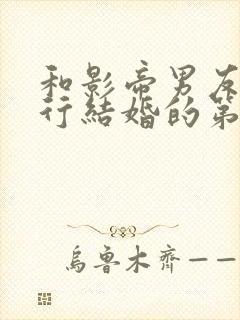 和影帝男友
行結婚的第
烏魯木齊——